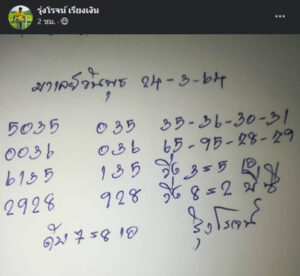 รุ่งโรจน์ เรียงเงิน
2 ชม.
มาเลย์วันพุธ 24-3-64
5035 035 35-36-30-31
0036 036 65-95-28-29
6135 135 วิ่ง 3=5
2928 928 วิ่ง 8=2
รุ่งโรจน์